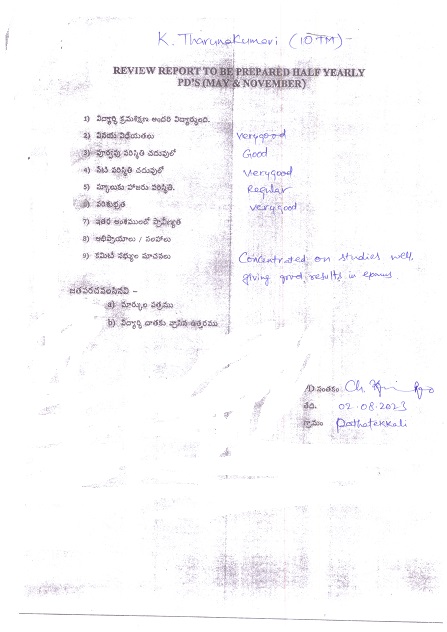 K. Tharunakumari (10TM) -
REVIEW REPORT TO BE PREPARED HALF YEARLY
PD'S (MAY & NOVEMBER)
1) విద్యార్థి క్రమశిక్షణ అందరి విద్యార్థుంది.
2) వినయ విధేయతలు verygood
3) పూర్వపు పరిస్థితి చదువులో Good
4) నేటి పరిస్థితి చదువులో verygood
5) స్కూలుకు హాజరు పరిస్థితి. Regular
6) పరిశుభ్రత verygood
7) ఇతర అంశములలో ప్రావీణ్యత
8) అభిప్రాయాలు / సలహాలు
9) కమిటీ సభ్యుల సూచనలు Concentrated on studies well.
giving good results in exams
జతపరచవలసినవి -
a) మార్కుల పత్రము
b) విద్యార్థి దాతకు వ్రాసిన ఉత్తరము
సంతకం Ch.
తేది. 02.08.2023
గ్రామం Pathatekkali